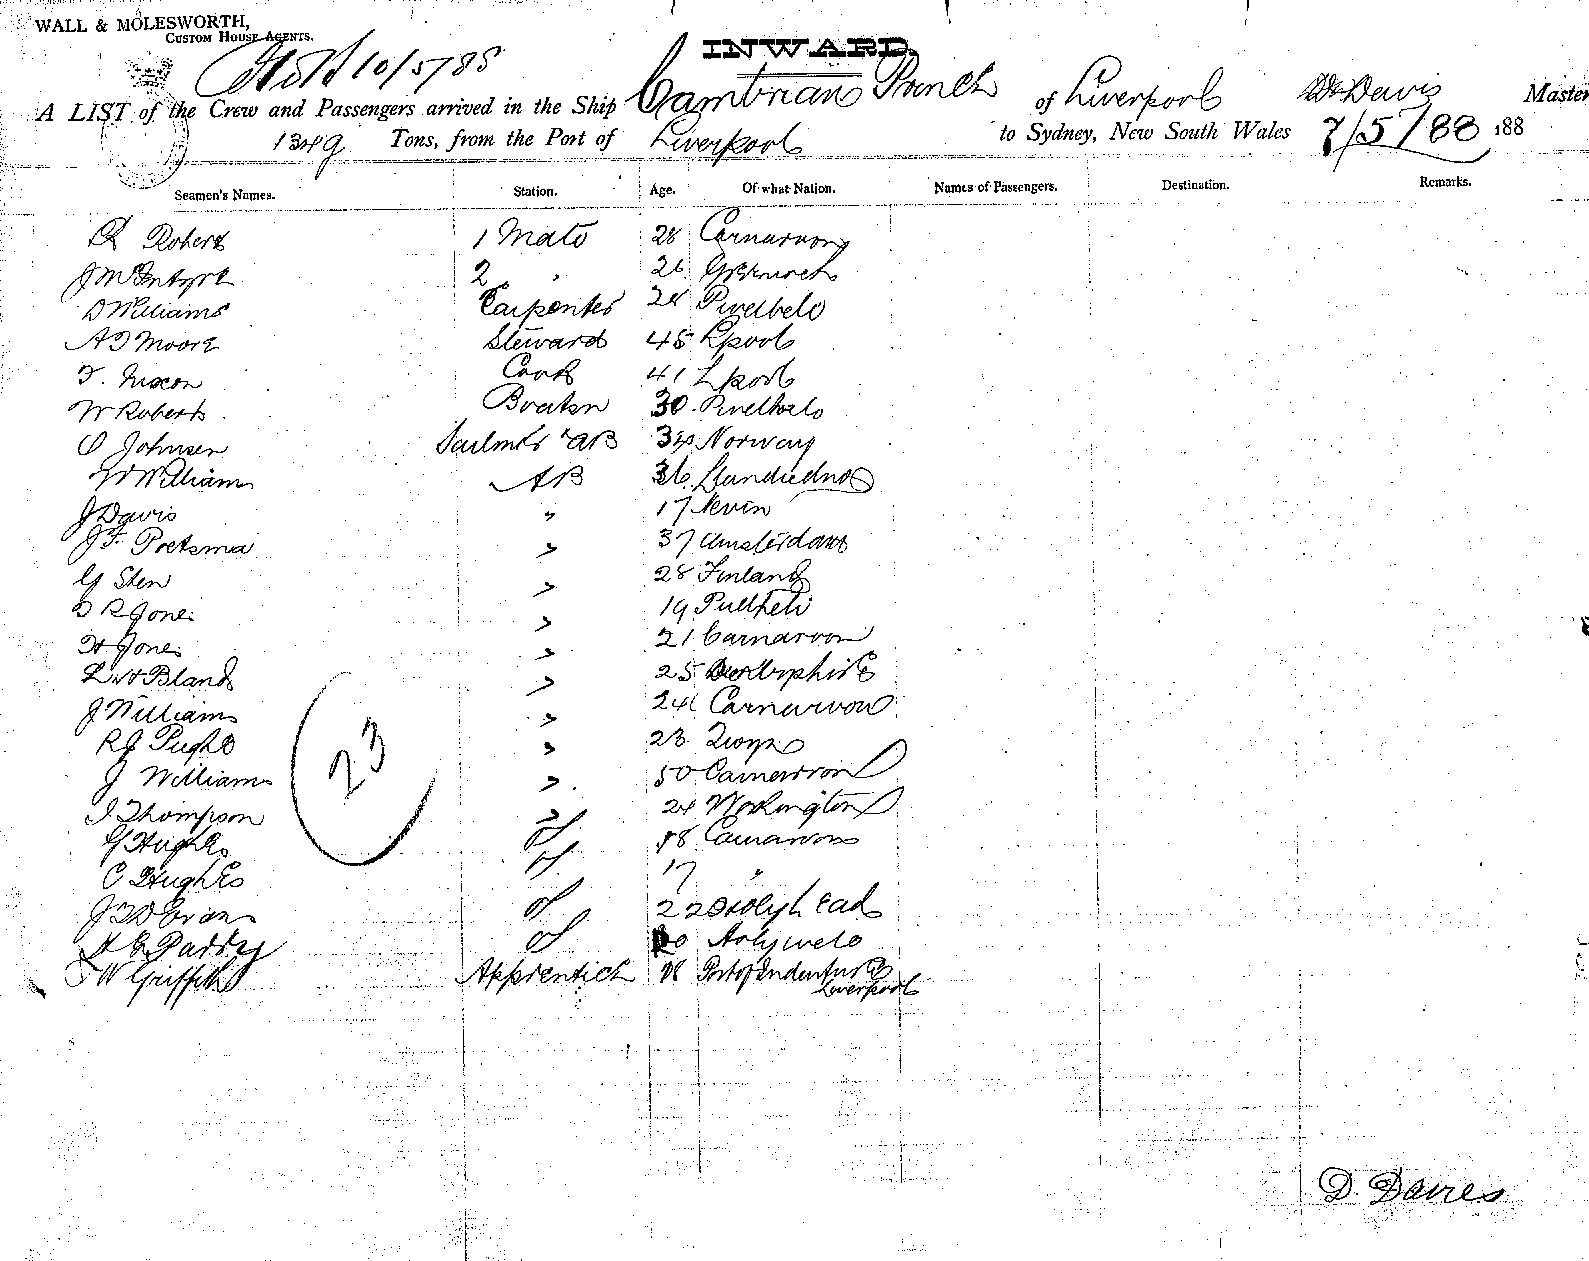 WALL & MOLESWORTH,
CUSTOM HOUSE AGENTS.
INWARD.
10/5/88
A LIST of the Crew and Passengers arrived in the Ship Cambrian Prince of Liverpool D Davis Master
1349 Tons, from the Port of Liverpool to Sydney, New South Wales 7/5/88 188
Seamen's Names. Station. Age. Of what Nation. Names of Passengers. Destination. Remarks.
R Roberts 1 Mate 28 Carnarvon
J McIntyre 2 " 26 Greenock
D Williams Carpenter 24 Pwelhelo
A J Moore Steward 45 Lpool
T. Nixon Cook 41 Lpool
W Roberts Boatsn 30 Pwelhelo
O Johnsen Sailmkr & AB 34 Norway
W William AB 36 Llandudno
J Davis " 17 Nevin
J F. Poetsma " 37 Amsterdam
G Sten " 28 Finland
D R Jones " 19 Pullheli
H Jones " 21 Carnarvon
L H Bland " 25 Derbyshire
J Williams " 24 Carnarvon
R J Pugh " 23
J Williams " 50 Carnarvon
J Thompson " 24 Workington
23
G Hughes OS 18 Carnarvon
C Hughes OS 17 "
J D Evans OS 22 Holyhead
H G Parry OS 20 Holywell
W Griffith Apprentice 18 Port of Indenture
Liverpool
D. Davies